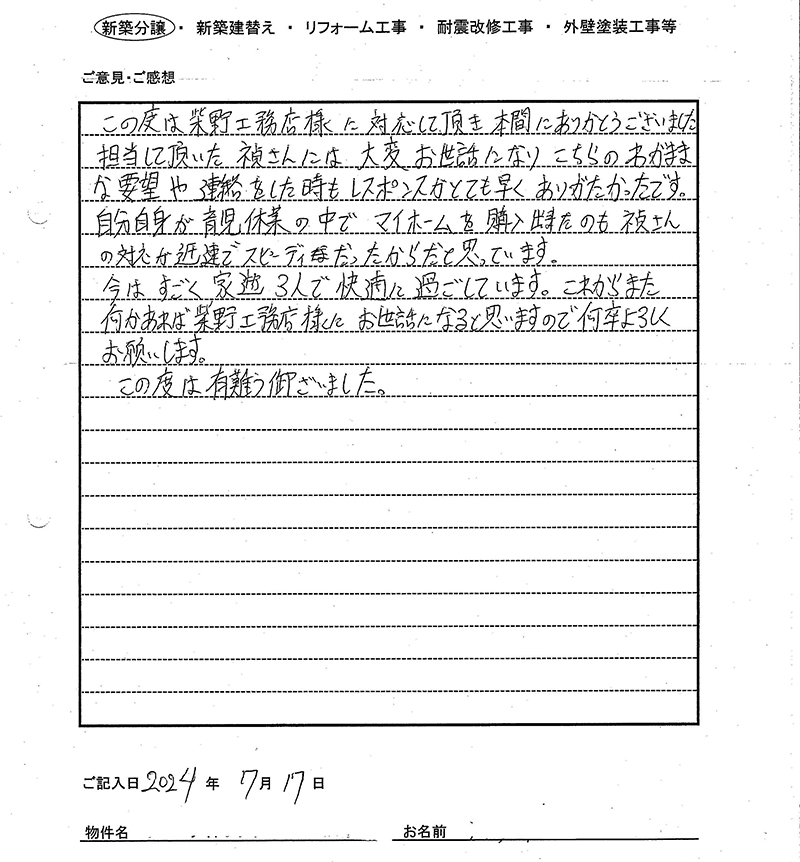 新築分譲 ・ 新築建替え ・ リフォーム工事 ・ 耐震改修工事 ・ 外壁塗装工事等
ご意見・ご感想
この度は柴野工務店様に対応して頂き本間にありがとうございました
担当して頂いた禎さんには大変お世話になりこちらのわがまま
な要望や連絡をした時もレスポンスがとても早くありがたかったです。
自分自身が育児休業の中でマイホームを購入出来たのも禎さん
の対応が迅速でスピーディーだったからだと思っています。
今はすごく家族3人で快適に過ごしています。これからまた
何かあれば柴野工務店様にお世話になると思いますので何卒よろしく
お願いします。
この度は有難う御ざいました。
ご記入日 2024 年 7月 17日
物件名 お名前